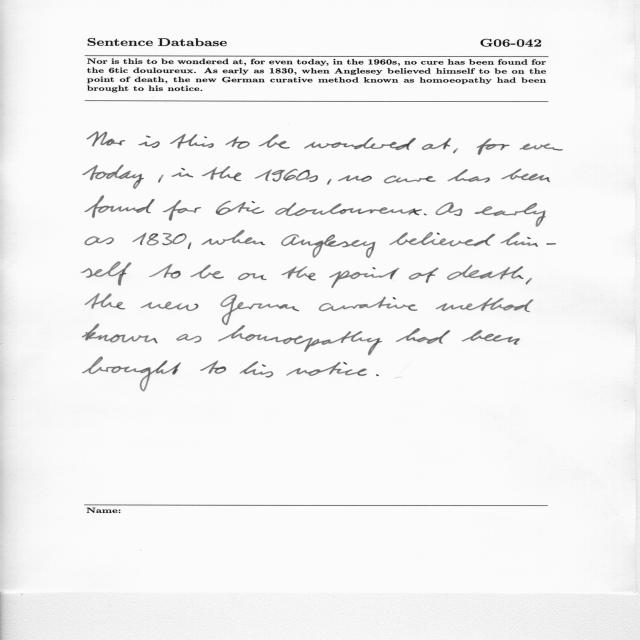 Sentence Database G06-042
Nor is this to be wondered at, for even today, in the 1960s, no cure has been found for
the 6tic douloureux. As early as 1830, when Anglesey believed himself to be on the
point of death, the new German curative method known as homoeopathy had been
brought to his notice.
Nor is this to be wondered at, for even
today, in the 1960s, no cure has been
found for 6tic douloureux. As early
as 1830, when Anglesey believed him-
self to be on the point of death,
the new German curative method
known as homoepathy had been
brought to his notice.
Name: